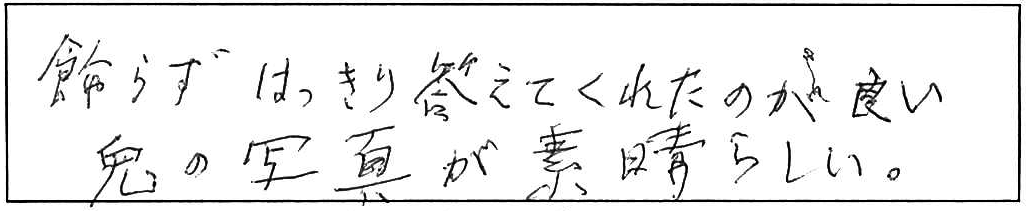 飾らずはっきり答えてくれたのが良い
鬼の写真が素晴らしい。